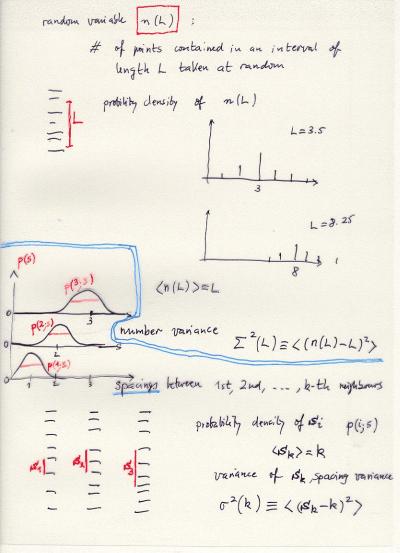 random variable n(L) :
# of points contained in an interval of
length L taken at random
L
probility density of n(L)
L=3.5
3
L=8.25
8
p(s)
p(3;s)
<n(L)>=L
0
3
p(2;s)
number variance
Σ²(L)≡<(n(L)-L)²>
0
s
p(1;s)
0
1
3
spacings between 1st, 2nd, ..., k-th neighbours
probability density of si p(i;s)
<sk>=k
s1
s2
s3
variance of sk, spacing variance
σ²(k)≡<(sk-k)²>